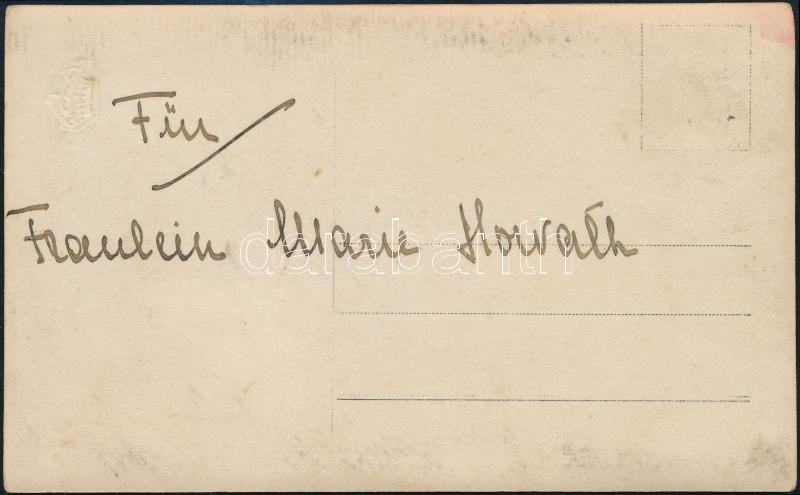 Für
Fraulein Marie Horvath
darabanth